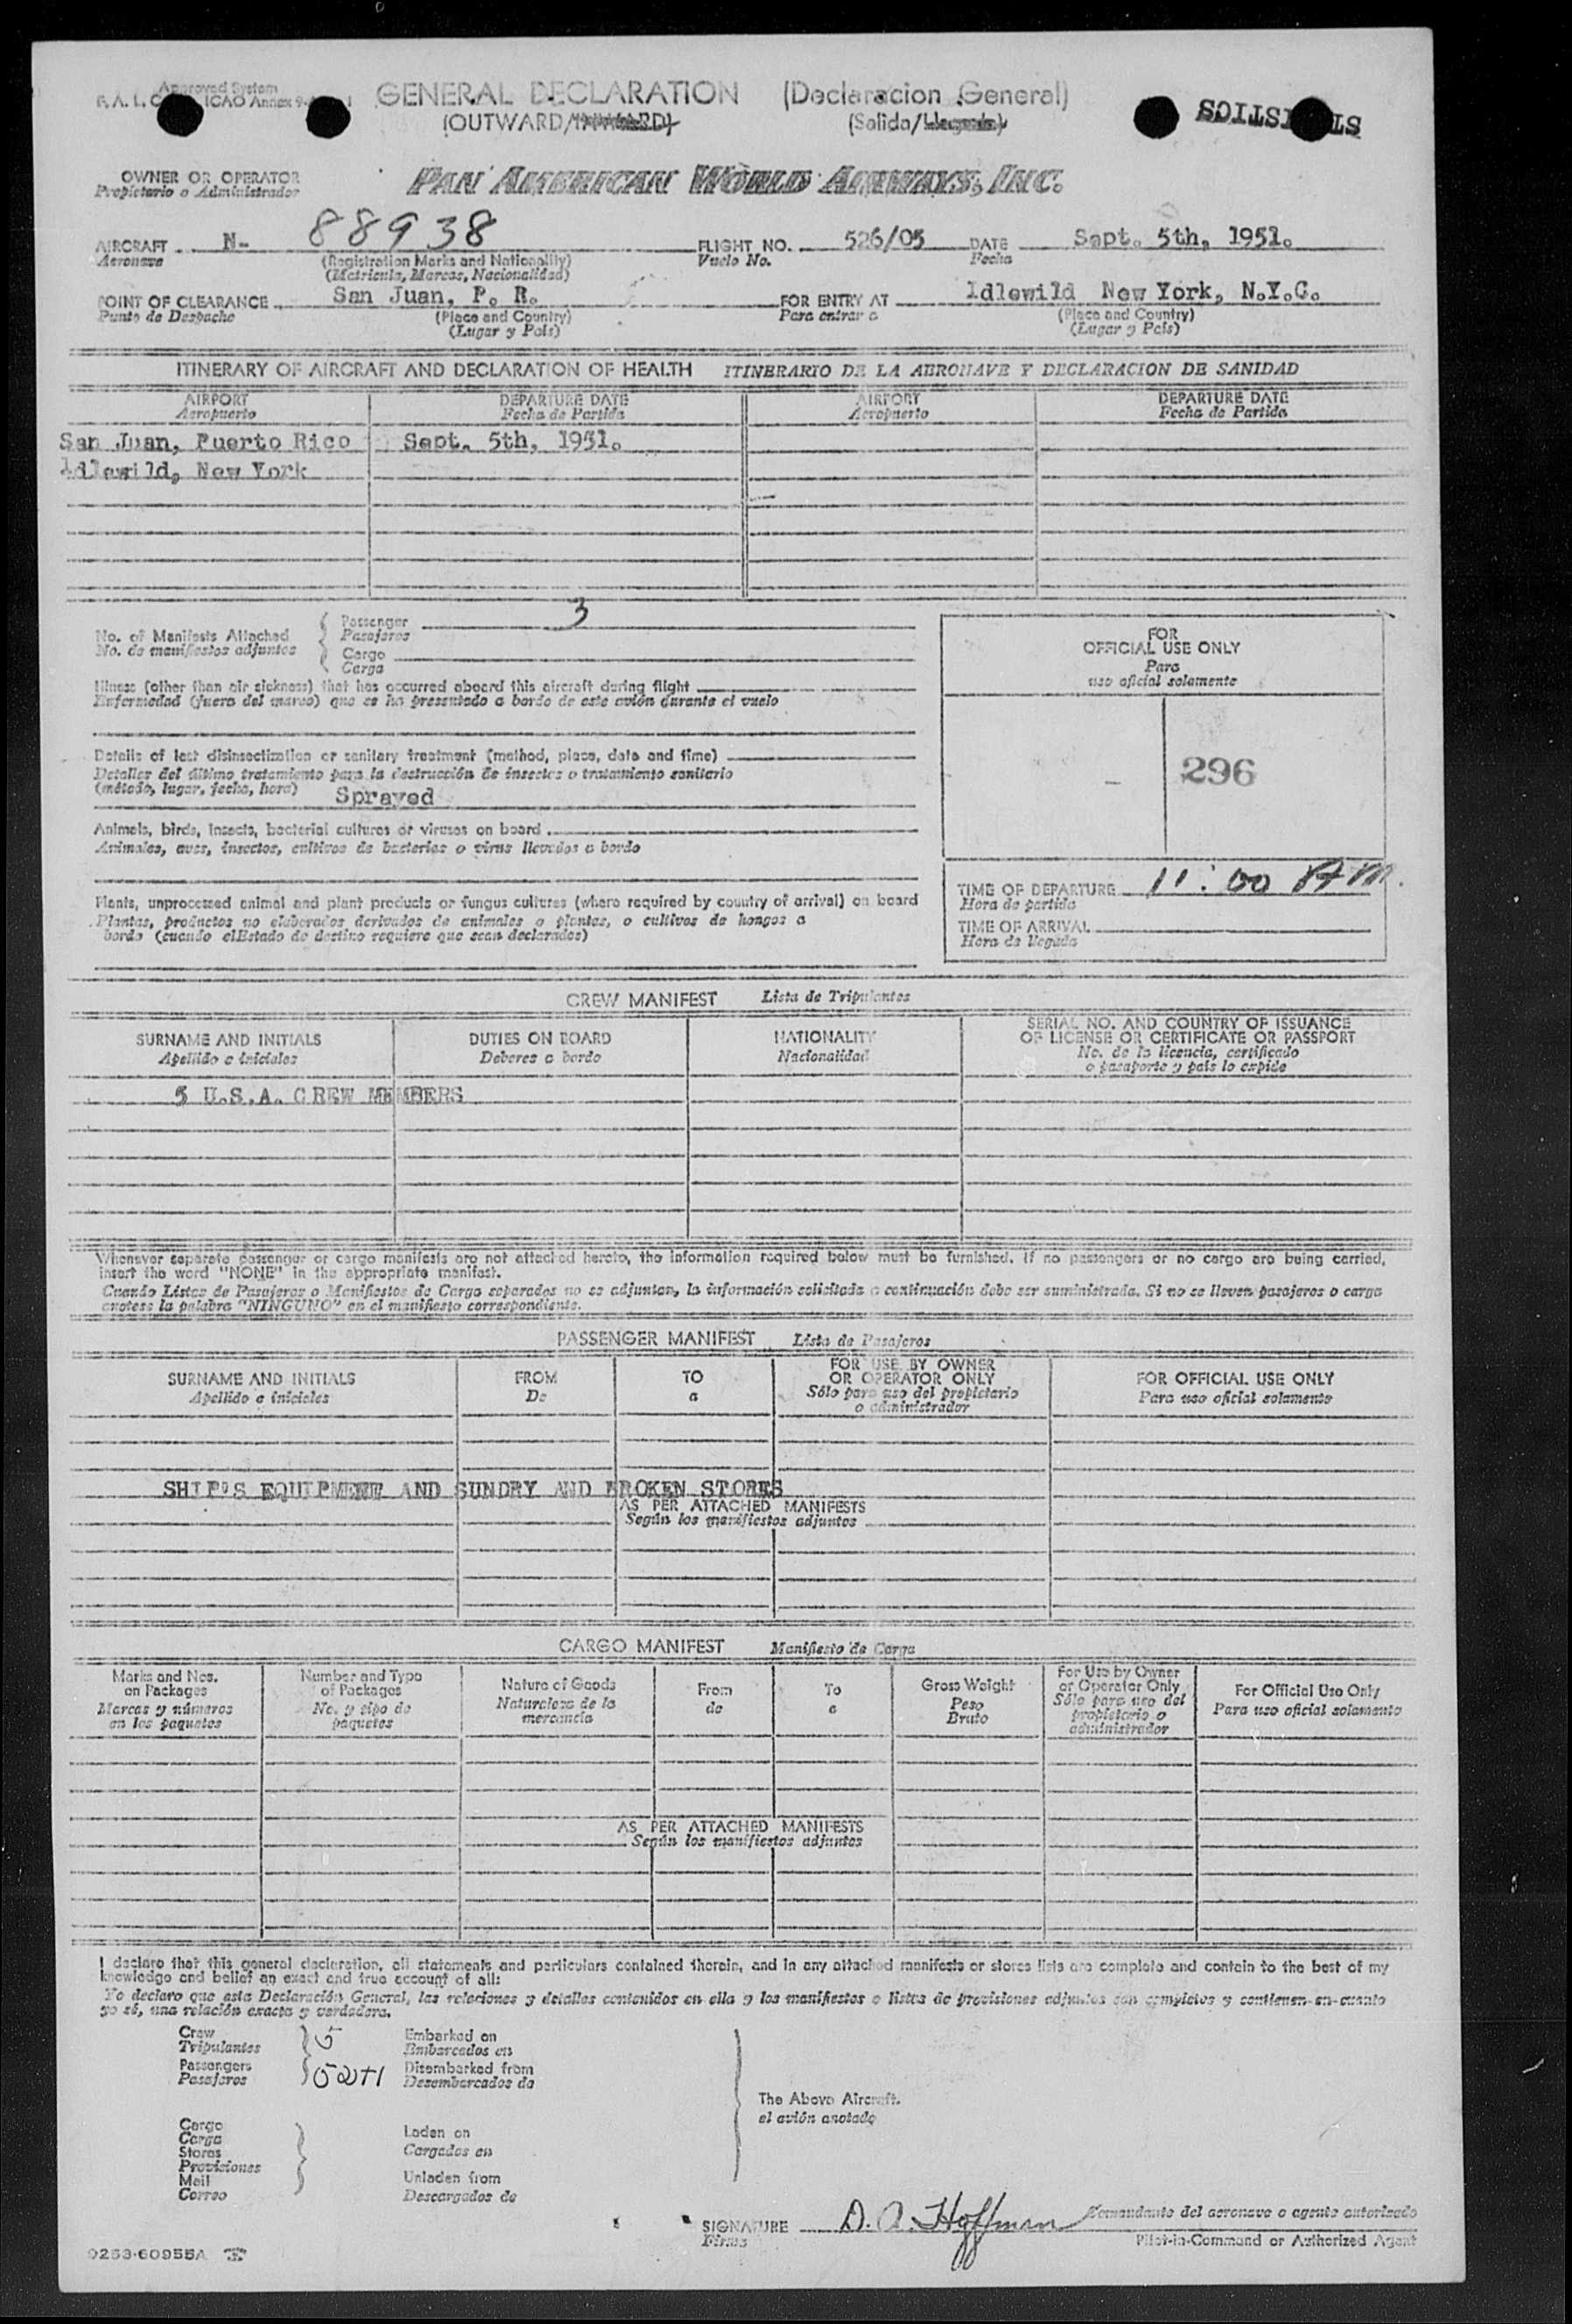 Approved System
F.A.L. ICAO Annex 9
GENERAL DECLARATION (Declaracion General)
(OUTWARD/INWARD) (Salida/Llegada)
OWNER OR OPERATOR
Propietario o Administrador
PAN AMERICAN WORLD AIRWAYS, INC.
AIRCRAFT N- 88938 FLIGHT NO. 526/05 DATE Sept. 5th, 1951.
Aeronave (Registration Marks and Nationality) Vuelo No. Fecha
(Matricula, Marcas, Nacionalidad)
POINT OF CLEARANCE San Juan, P. R. FOR ENTRY AT Idlewild New York, N.Y.C.
Punto de Despacho (Place and Country) Para entrar a (Place and Country)
(Lugar y País) (Lugar y País)
ITINERARY OF AIRCRAFT AND DECLARATION OF HEALTH ITINERARIO DE LA AERONAVE Y DECLARACION DE SANIDAD
AIRPORT DEPARTURE DATE AIRPORT DEPARTURE DATE
Aeropuerto Fecha de Partida Aeropuerto Fecha de Partida
San Juan, Puerto Rico Sept. 5th, 1951.
Idlewild, New York
No. of Manifests Attached
No. de manifiestos adjuntos
Passenger 3
Pasajeros
Cargo
Carga
Illness (other than air sickness) that has occurred aboard this aircraft during flight
Enfermedad (fuera del mareo) que se ha presentado a bordo de este avión durante el vuelo
Details of last disinsectization or sanitary treatment (method, place, date and time)
Detalles del último tratamiento para la destrucción de insectos o tratamiento sanitario
(método, lugar, fecha, hora) Sprayed
Animals, birds, insects, bacterial cultures or viruses on board
Animales, aves, insectos, cultivos de bacterias o virus llevados a bordo
Plants, unprocessed animal and plant products or fungus cultures (where required by country of arrival) on board
Plantas, productos no elaborados derivados de animales o plantas, o cultivos de hongos a
bordo (cuando elEstado de destino requiere que sean declarados)
FOR
OFFICIAL USE ONLY
Para
uso oficial solamente
296
TIME OF DEPARTURE 11:00 AM.
Hora de partida
TIME OF ARRIVAL
Hora de llegada
CREW MANIFEST Lista de Tripulantes
SURNAME AND INITIALS DUTIES ON BOARD NATIONALITY SERIAL NO. AND COUNTRY OF ISSUANCE
OF LICENSE OR CERTIFICATE OR PASSPORT
Apellido e iniciales Deberes a bordo Nacionalidad No. de la licencia, certificado
o pasaporte y país lo expide
5 U.S.A. CREW MEMBERS
Whenever separate passenger or cargo manifests are not attached hereto, the information required below must be furnished. If no passengers or no cargo are being carried,
insert the word "NONE" in the appropriate manifest.
Cuando Listas de Pasajeros o Manifiestos de Carga separados no se adjuntan, la información solicitada a continuación debe ser suministrada. Si no se lleven pasajeros o carga
anotese la palabra "NINGUNO" en el manifiesto correspondiente.
PASSENGER MANIFEST Lista de Pasajeros
SURNAME AND INITIALS FROM TO FOR USE BY OWNER
OR OPERATOR ONLY FOR OFFICIAL USE ONLY
Apellido e iniciales De a Sólo para uso del propietario
o administrador Para uso oficial solamente
SHIP'S EQUIPMENT AND SUNDRY AND BROKEN STORES
AS PER ATTACHED MANIFESTS
Según los manifiestos adjuntos
CARGO MANIFEST Manifiesto de Carga
Marks and Nos.
on Packages
Marcas y números
en los paquetes
Number and Type
of Packages
No. y tipo de
paquetes
Nature of Goods
Naturaleza de la
mercancía
From
de
To
a
Gross Weight
Peso
Bruto
For Use by Owner
or Operator Only
Sólo para uso del
propietario o
administrador
For Official Use Only
Para uso oficial solamente
AS PER ATTACHED MANIFESTS
Según los manifiestos adjuntos
I declare that this general declaration, all statements and particulars contained therein, and in any attached manifests or stores lists are complete and contain to the best of my
knowledge and belief an exact and true account of all:
Yo declaro que esta Declaración General, las relaciones y detalles contenidos en ella y los manifiestos o listas de provisiones adjuntos son completos y contienen en cuanto
yo sé, una relación exacta y verdadera.
Crew 5 Embarked on
Tripulantes Embarcados en
Passengers 52+1 Disembarked from
Pasajeros Desembarcados de
The Above Aircraft.
el avión anotado
Cargo
Carga
Stores
Provisiones
Mail
Correo
Laden on
Cargados en
Unladen from
Descargados de
SIGNATURE D. A. Hoffman Comandante del aeronave o agente autorizado
Firma Pilot-in-Command or Authorized Agent
9253-60955A